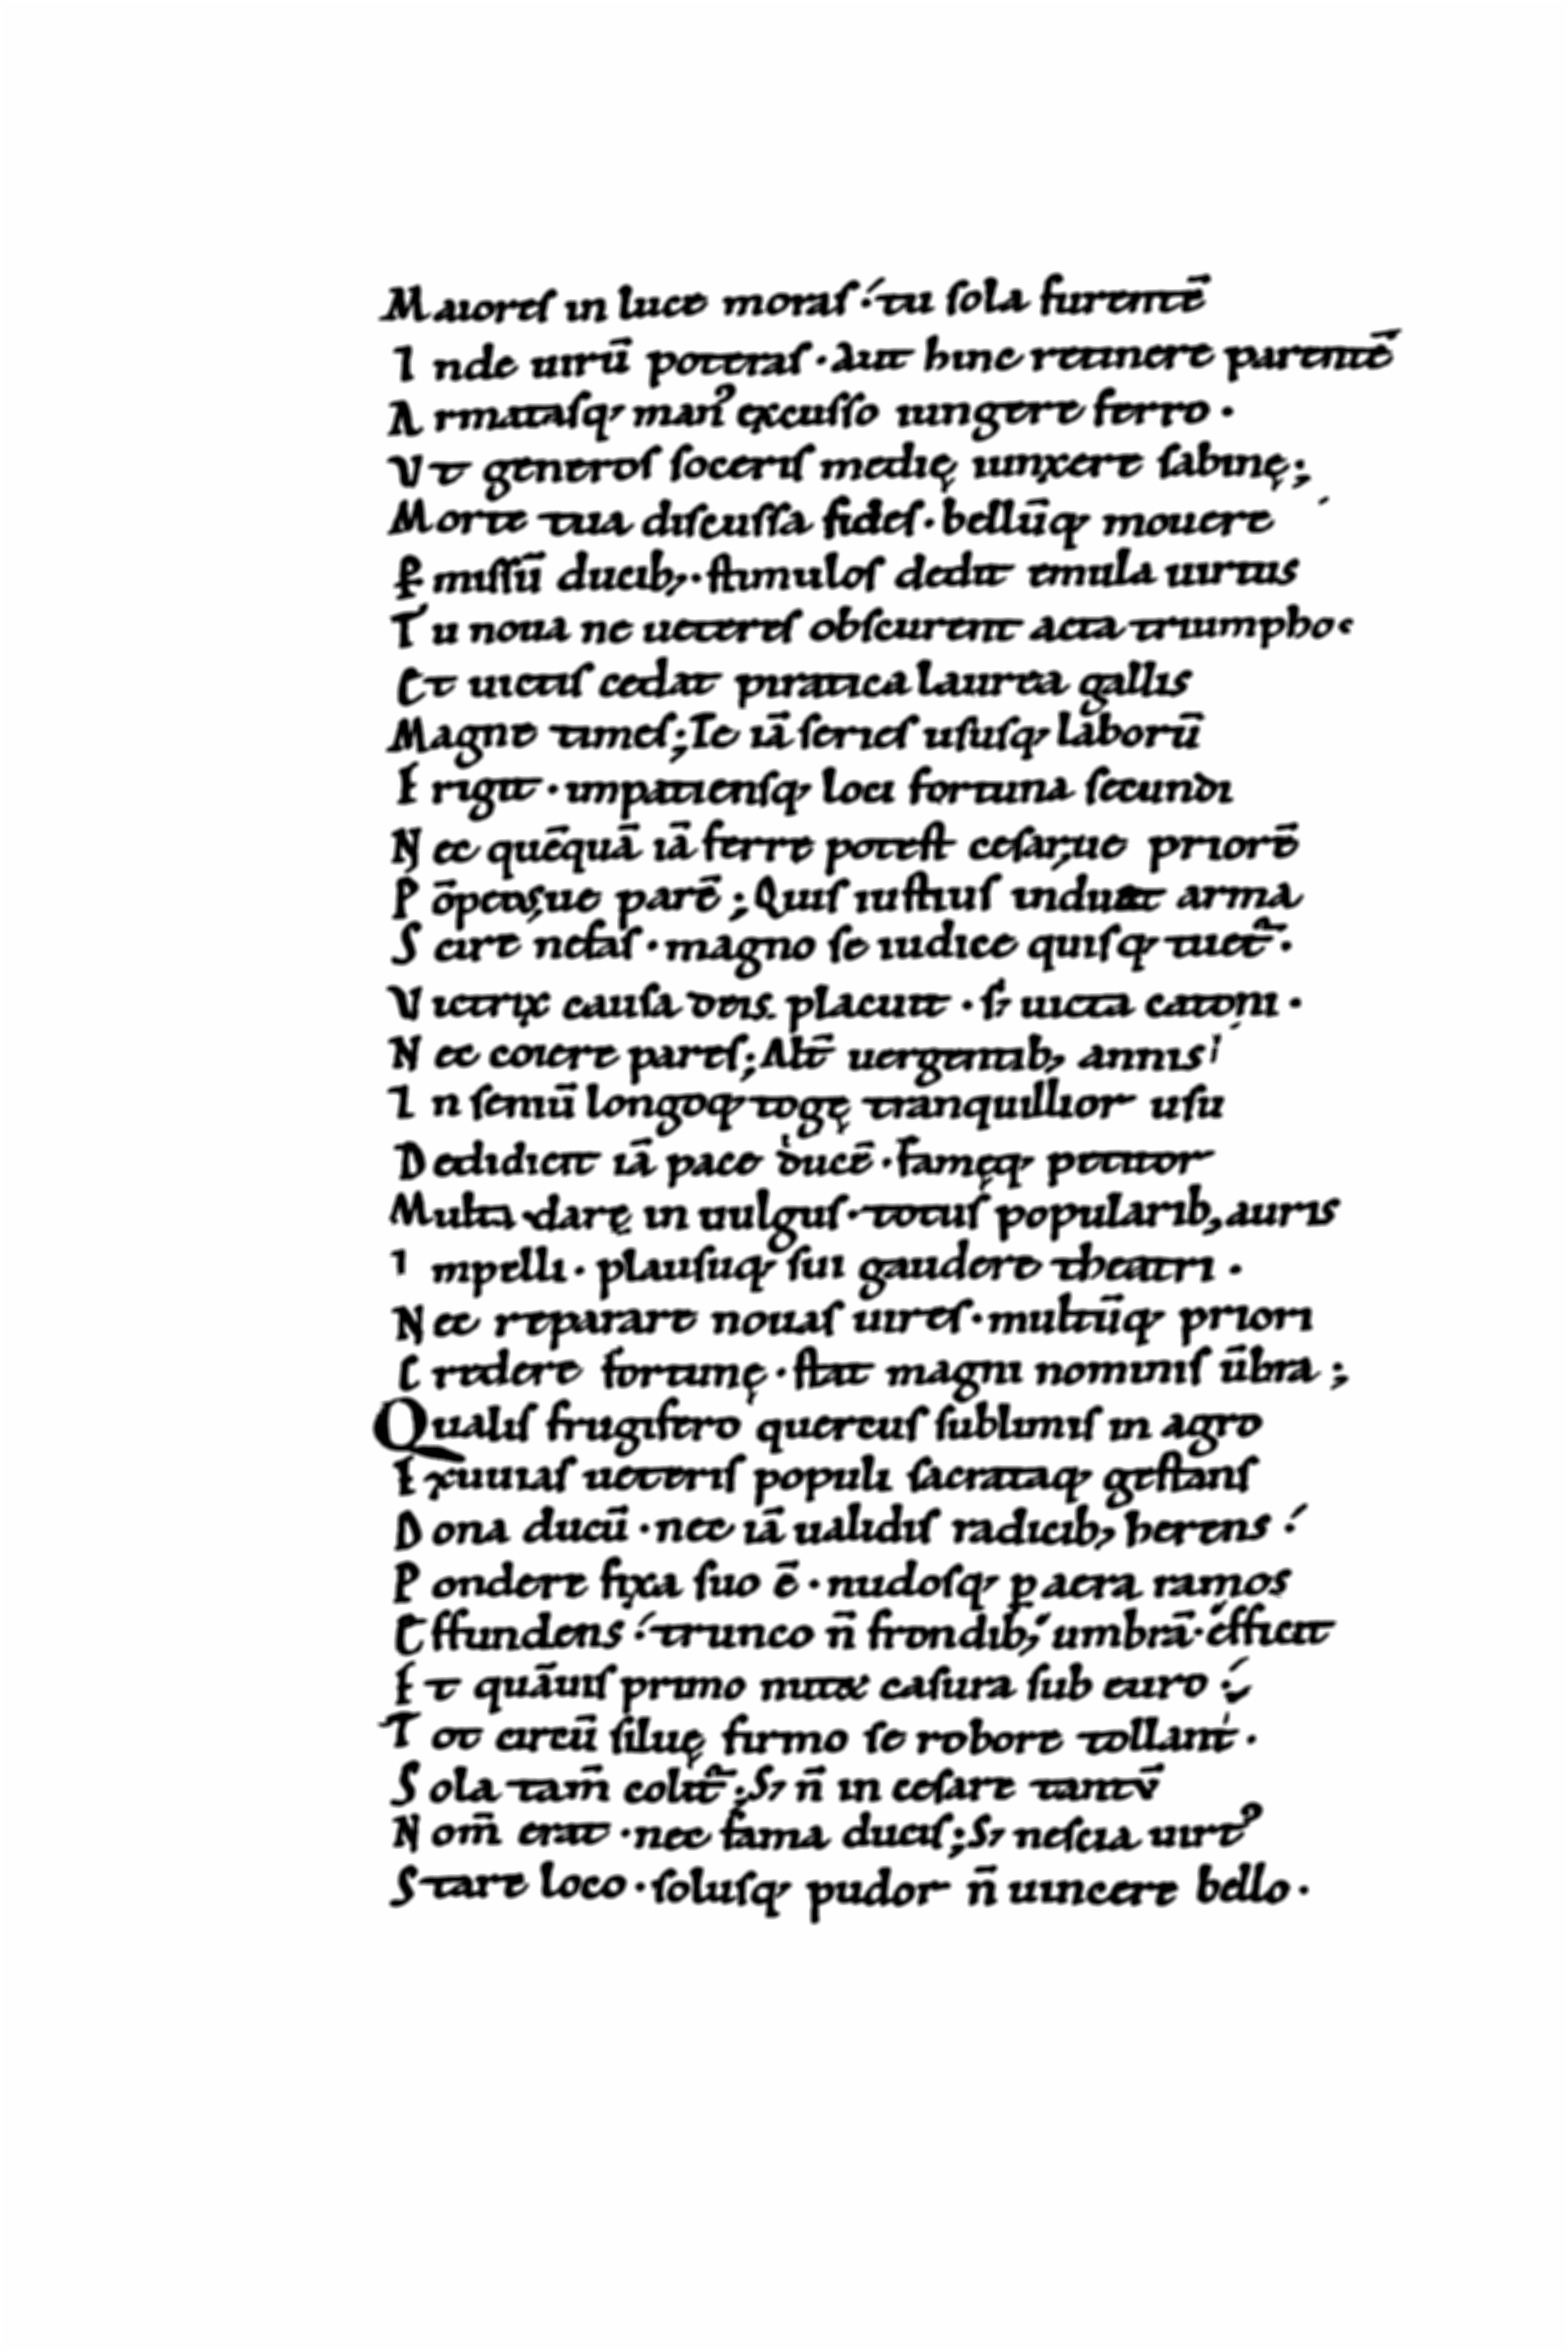 Maioreſ in luce moraſ :́ tu ſola furentē
Inde uirū poteraſ · aut hinc retinere parentē
Armataſq; man᾿ excuſſo iungere ferro ·
Vt generoſ ſoceriſ medię iunxere ſabinę ;
Morte tua diſcuſſa fideſ · bellūq; mouere
Ꝑmiſſū ducib; · ſtimuloſ dedit emula uirtus
Tu noua ne uetereſ obſcurent acta triumphos
Et uictiſ cedat piratica laurea gallis
Magne timeſ ; Te iā ſerieſ uſuſq; laborū
Erigit · impatienſq; loci fortuna ſecundi
Nec quēquā iā ferre poteſt ceſar,ue priorē
Pōpeius,ue parē ; Quiſ iuſtiuſ induat arma
Scire nefaſ · magno ſe iudice quiſq; tuet̄ ·
Victrix cauſa deis placuit · ſ; uicta catoni ·
Nec coiere pareſ ; Alt̄ uergentib; annis
In ſeniū longoq; togę tranquillior uſu
Dedidicit iā pace ducē · famęq; petitor
Multa darę in uulguſ · totuſ popularib; auris
Impelli · plauſuq; ſui gaudere theatri ·
Nec reparare nouaſ uireſ · multūq; priori
Credere fortunę · ſtat magni nominiſ ūbra ;
Qualiſ frugifero quercuſ ſublimiſ in agro
Exuuiaſ ueteriſ populi ſacrataq; geſtanſ
Dona ducū · nec iā ualidiſ radicib; herens :́
Pondere fixa ſuo ē · nudoſq; p aera ramos
Effundens :́ trunco n̄ frondib; umbrā · efficit
Et quāuiſ primo nutet caſura ſub euro :́
Tot circū ſiluę firmo ſe robore tollant ·
Sola tam̄ colit̄ ; S; n̄ in ceſare tantv̄
Nom̄ erat · nec fama duciſ ; S; neſcia uirt᾿
Stare loco · ſoluſq; pudor n̄ uincere bello ·